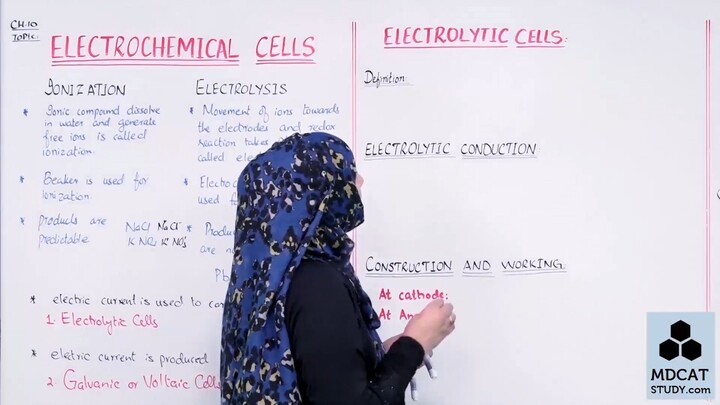 CH.10
TOPIC:
ELECTROCHEMICAL CELLS
IONIZATION
* Ionic compound dissolve
in water and generate
free ions is called
ionization.
* Beaker is used for
ionization.
* Products are
predictable
NaCl Na⁺Cl⁻
ELECTROLYSIS
* Movement of ions towards
the electrodes and redox
reaction takes
called
*
used fo
*
are
* electric current is used to
1. Electrolytic Cells
* eletric current is produced
2. Galvanic or Voltaic Cells
ELECTROLYTIC CELLS:
Definition:
ELECTROLYTIC CONDUCTION
CONSTRUCTION AND WORKING:
At cathode:
At
MDCAT
STUDY.com